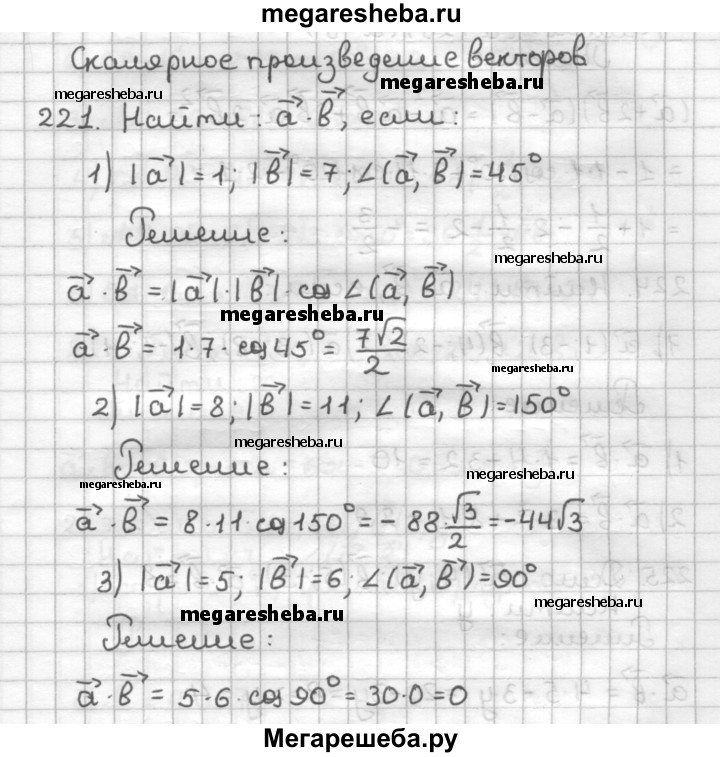 megaresheba.ru
Скалярное произведение векторов
megaresheba.ru
megaresheba.ru
221. Найти: a⃗ · b⃗, если:
1) |a⃗| = 1; |b⃗| = 7; ∠(a⃗, b⃗) = 45°
Решение:
megaresheba.ru
a⃗ · b⃗ = |a⃗| · |b⃗| · cos ∠(a⃗, b⃗)
megaresheba.ru
a⃗ · b⃗ = 1 · 7 · cos 45° = 7√2/2
megaresheba.ru
2) |a⃗| = 8; |b⃗| = 11; ∠(a⃗, b⃗) = 150°
megaresheba.ru
Решение:
megaresheba.ru
megaresheba.ru
a⃗ · b⃗ = 8 · 11 · cos 150° = - 88 · √3/2 = -44√3
3) |a⃗| = 5; |b⃗| = 6; ∠(a⃗, b⃗) = 90°
megaresheba.ru
megaresheba.ru
Решение:
a⃗ · b⃗ = 5 · 6 · cos 90° = 30 · 0 = 0
Мегарешеба.ру